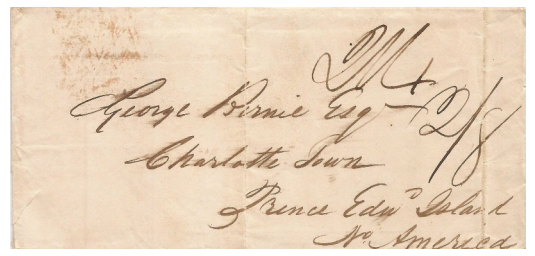 2/4
George Birnie Esqr 2/8
Charlotte Town
Prince Edwd Island
No America